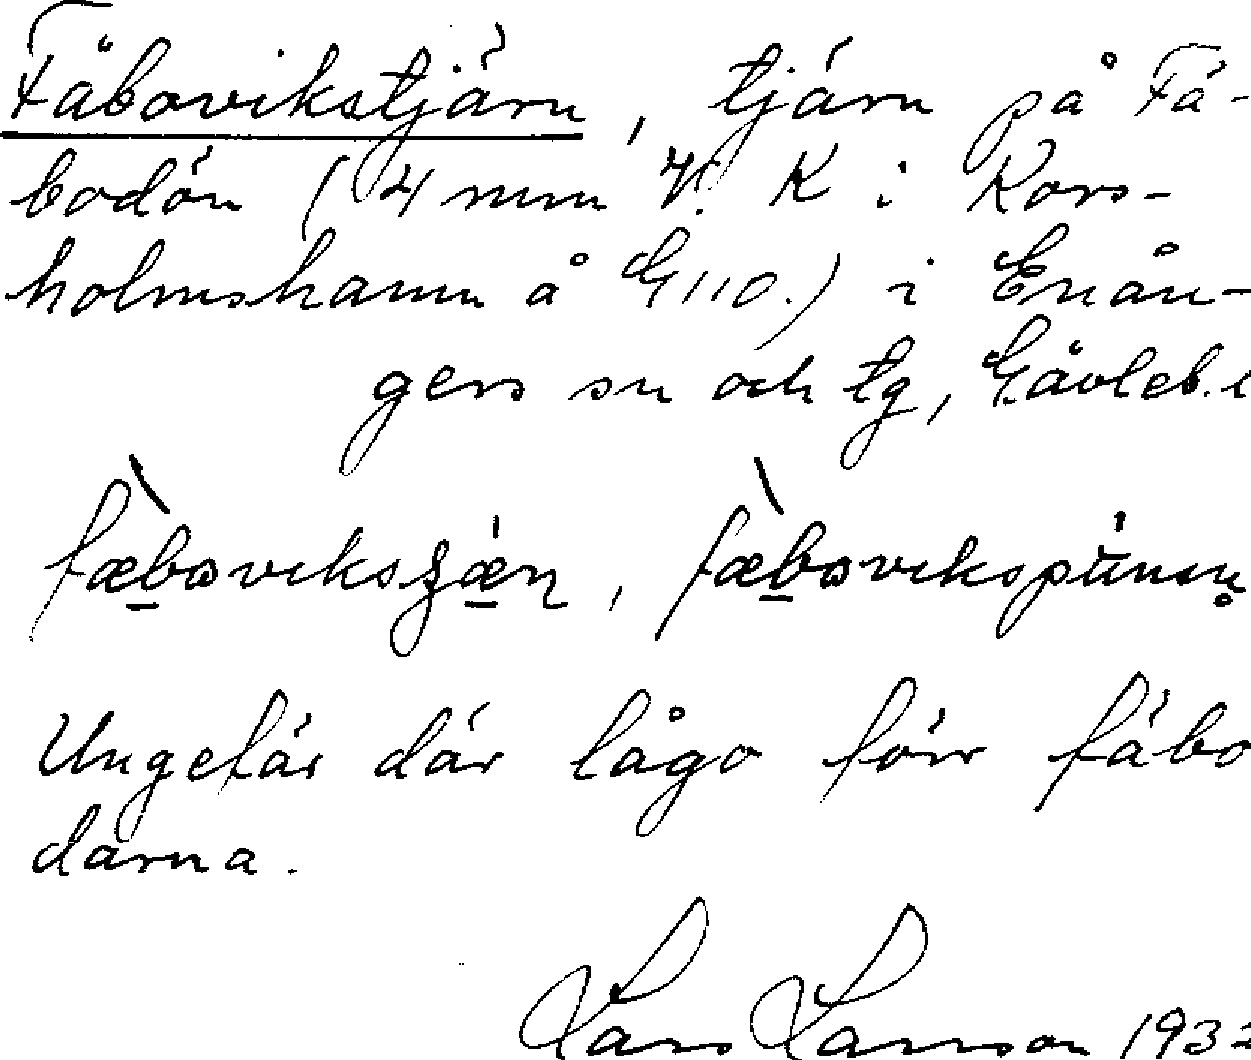 Fäbovikstjärn, tjärn på Fä-
bodön (4 mm V. K i Kors-
holmshamn å G110.) i Enån-
gers sn och tg, Gävleb. l
fæboviks æn, fæbovikspúnen
Ungefär där lågo förr fäbo
darna.
Lars Larsson 193